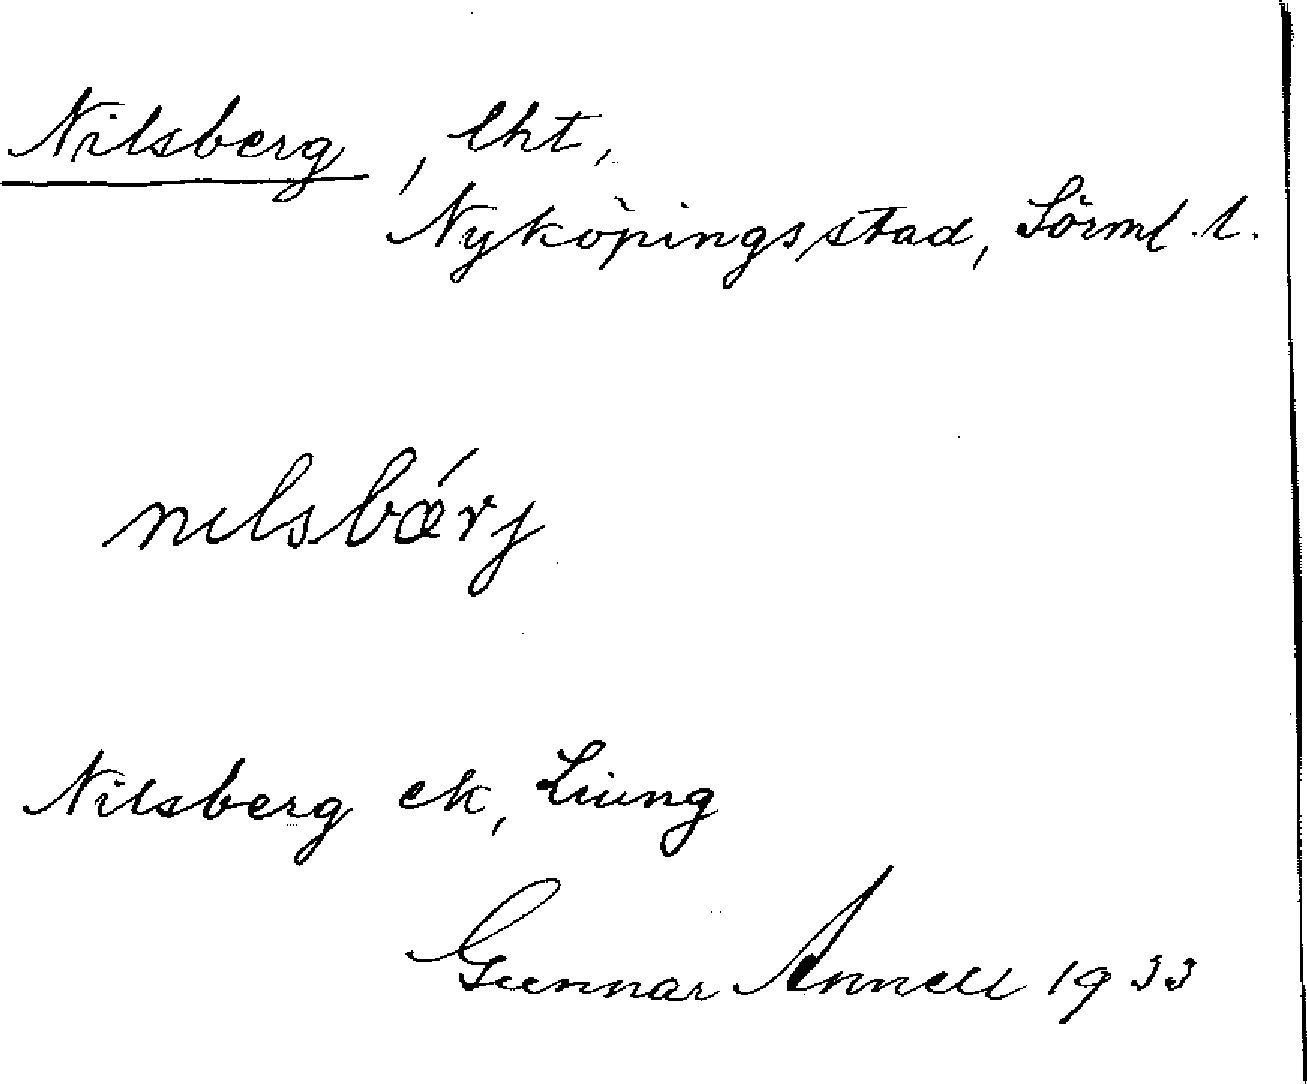 Nilsberg, lht,
Nyköpings stad, Sörml. l.
nɩlsbǽrj
Nilsberg ek, Ljung
Gunnar Annell 1933